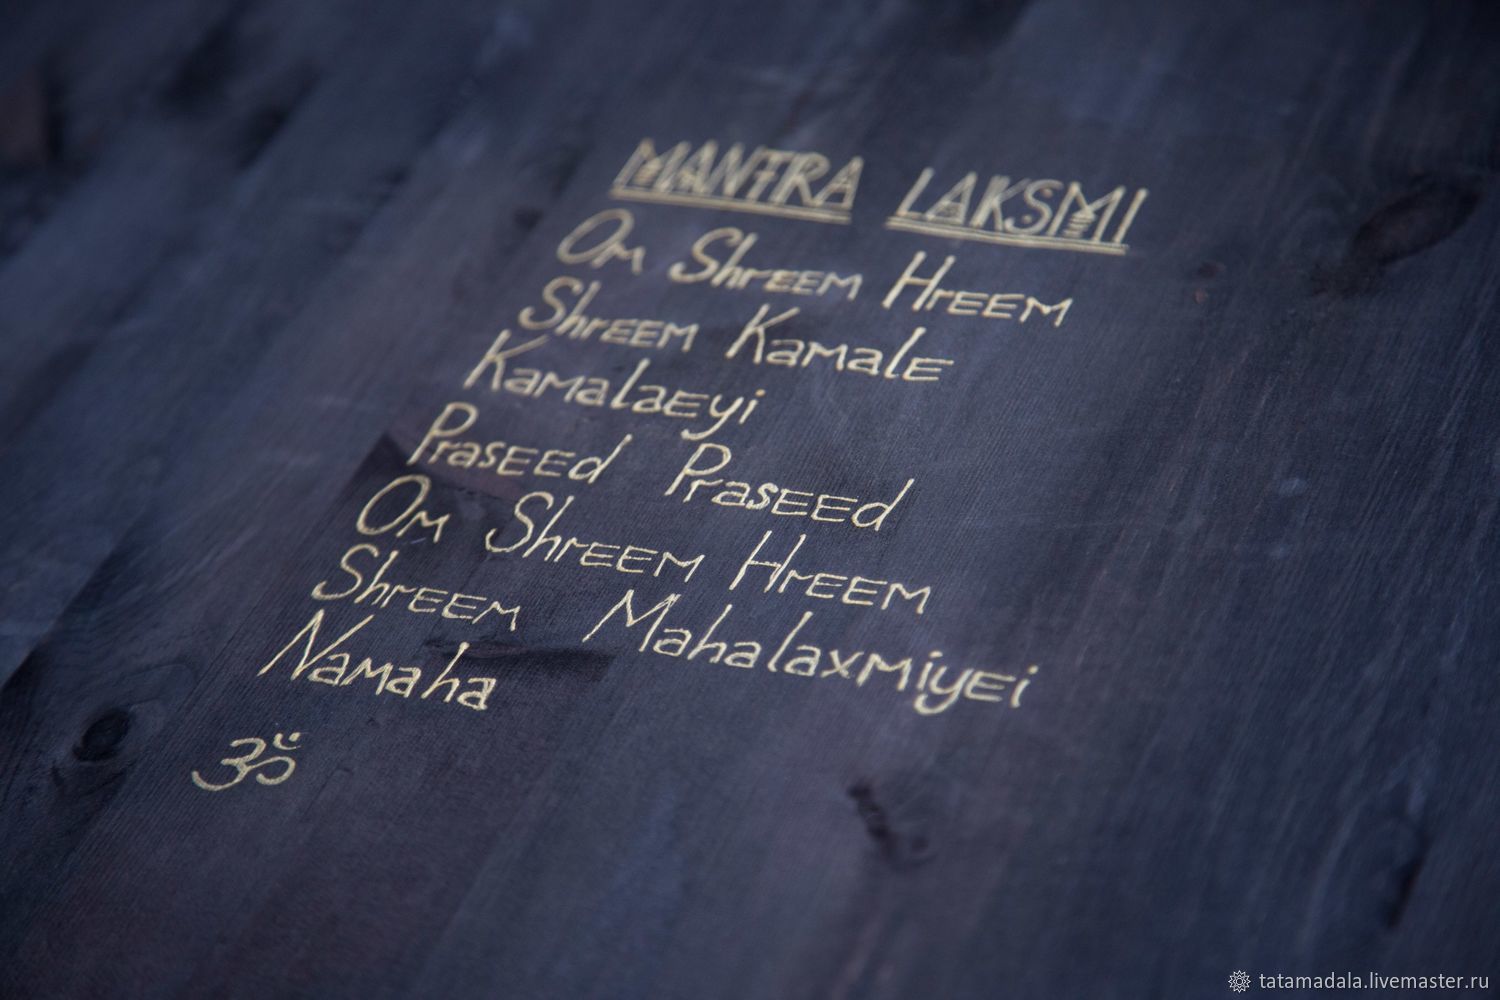 MANTRA LAKSMI
Om Shreem Hreem
Shreem Kamale
Kamalaeyi
Praseed Praseed
Om Shreem Hreem
Shreem Mahalaxmiyei
Namaha
ॐ
tatamadala.livemaster.ru